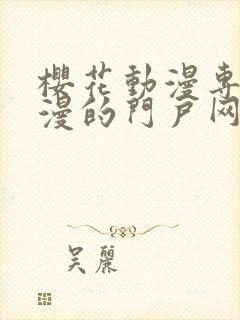 櫻花動漫專
漫的門戶网
吴麗